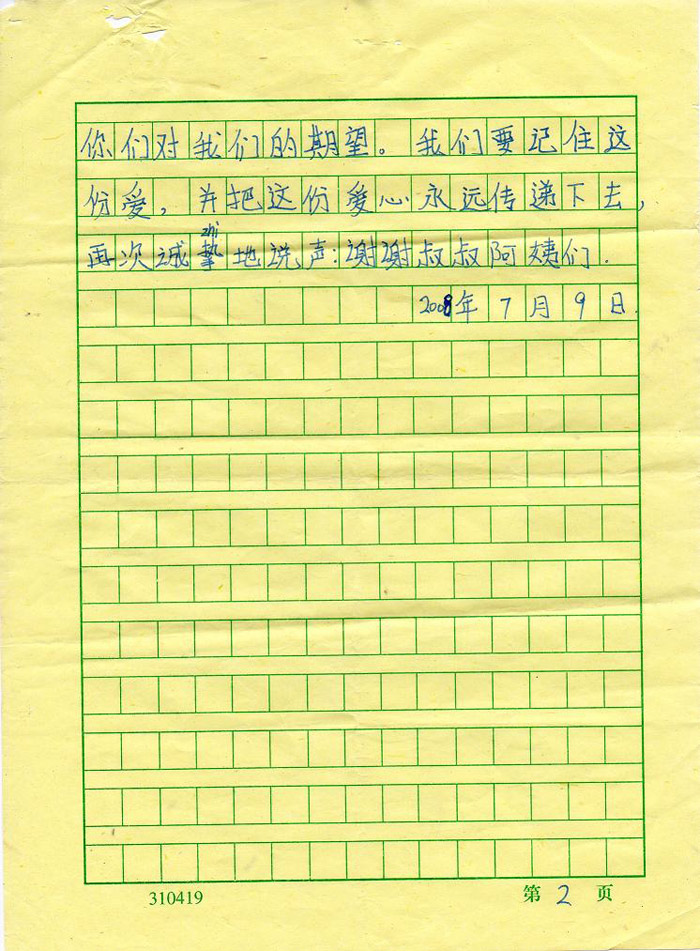 你们对我们的期望。我们要记住这
份爱，并把这份爱心永远传递下去，
zhì
再次诚挚地说声：谢谢叔叔阿姨们.
2008年7月9日.
310419 第2页